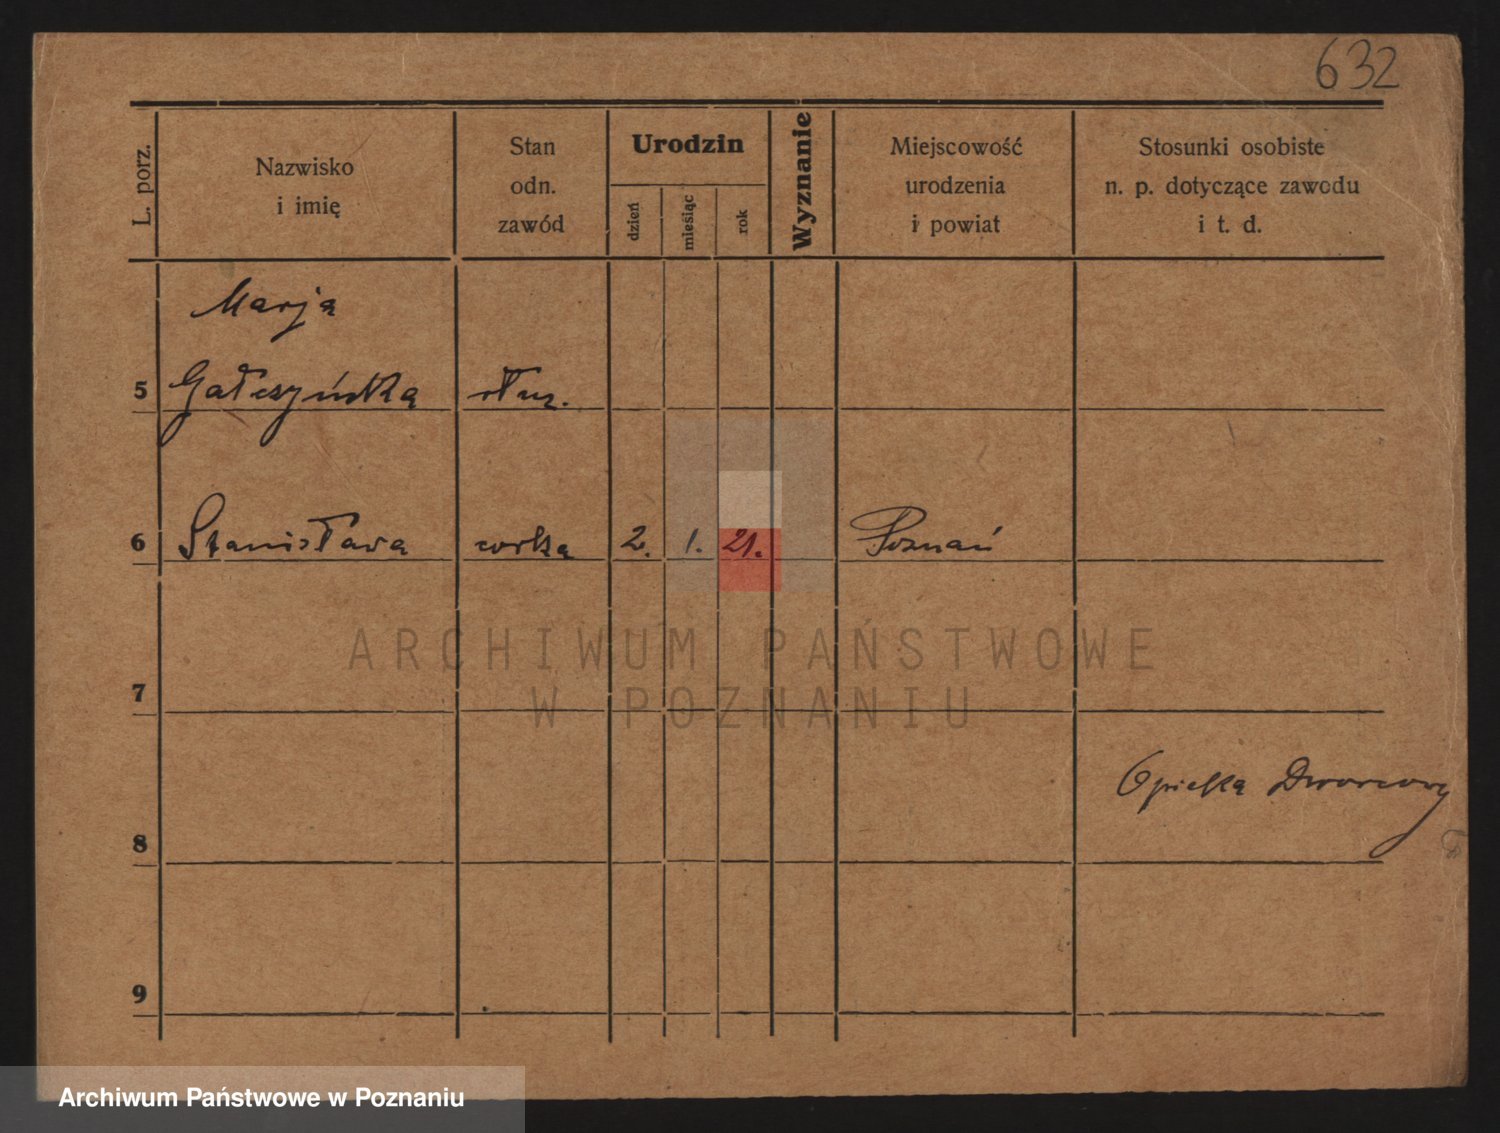 632
L. porz.
Nazwisko
i imię
Stan
odn.
zawód
Urodzin
dzień
miesiąc
rok
Wyznanie
Miejscowość
urodzenia
i powiat
Stosunki osobiste
n. p. dotyczące zawodu
i t. d.
Marja
5 Gałczyńska służ.
6 Stanisława córka 2. 1. 21. Poznań
ARCHIWUM PAŃSTWOWE
W POZNANIU
7
Opieka Dworcowy
8
9
Archiwum Państwowe w Poznaniu